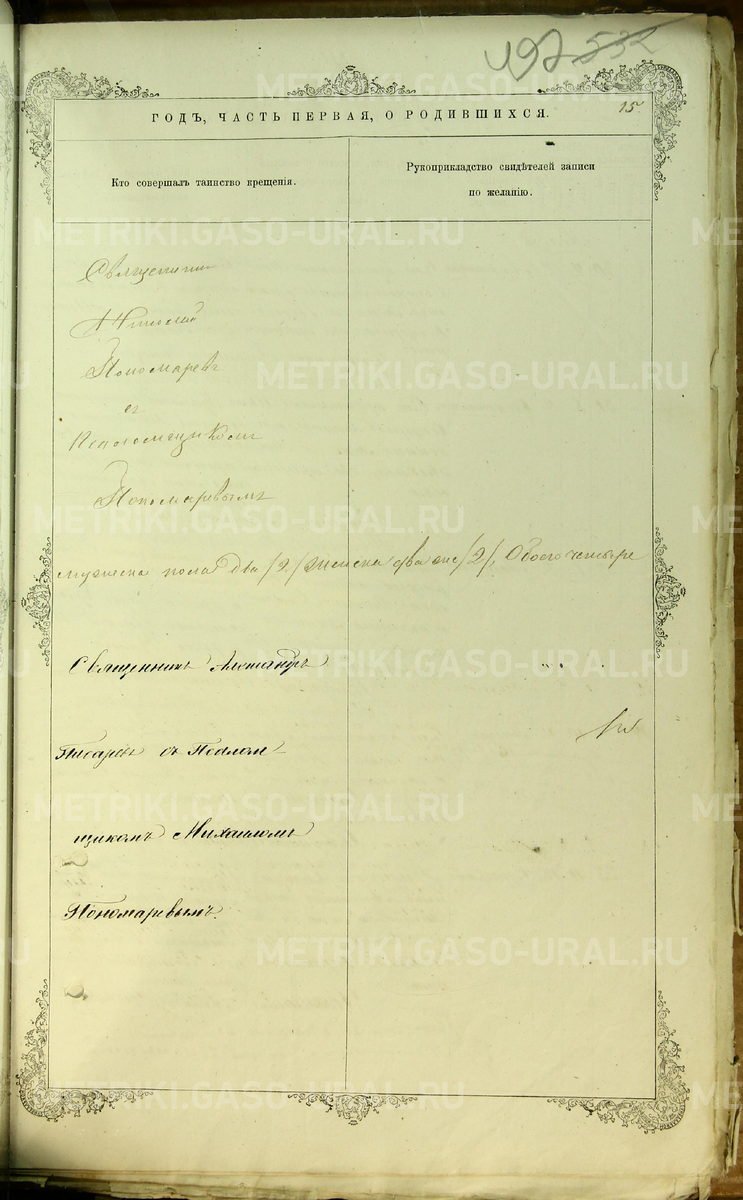 497 532
15
ГОДЪ, ЧАСТЬ ПЕРВАЯ, О РОДИВШИХСЯ.
Кто совершалъ таинство крещенія.
Рукоприкладство свидѣтелей записи
по желанію.
Священникъ
Николай
Пономаревъ
съ
Псаломщикомъ
Пономаревымъ
мужеска пола два /2/ женска два же /2/, Обоего четыре
Священникъ Александръ
Писаревъ съ Псалом
щикомъ Михаиломъ
Пономаревымъ.
METRIKI.GASO-URAL.RU